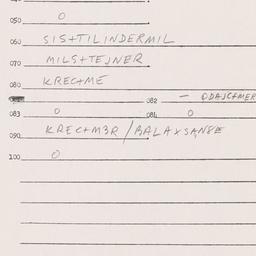 050 0
060 SIS+TILINDERMIL
070 MILS+TEJNER
080 KREC+ME
082 - ODAJC+MER
083 0 084 0
090 KREC+M3R/BALAXSANSE
100 0